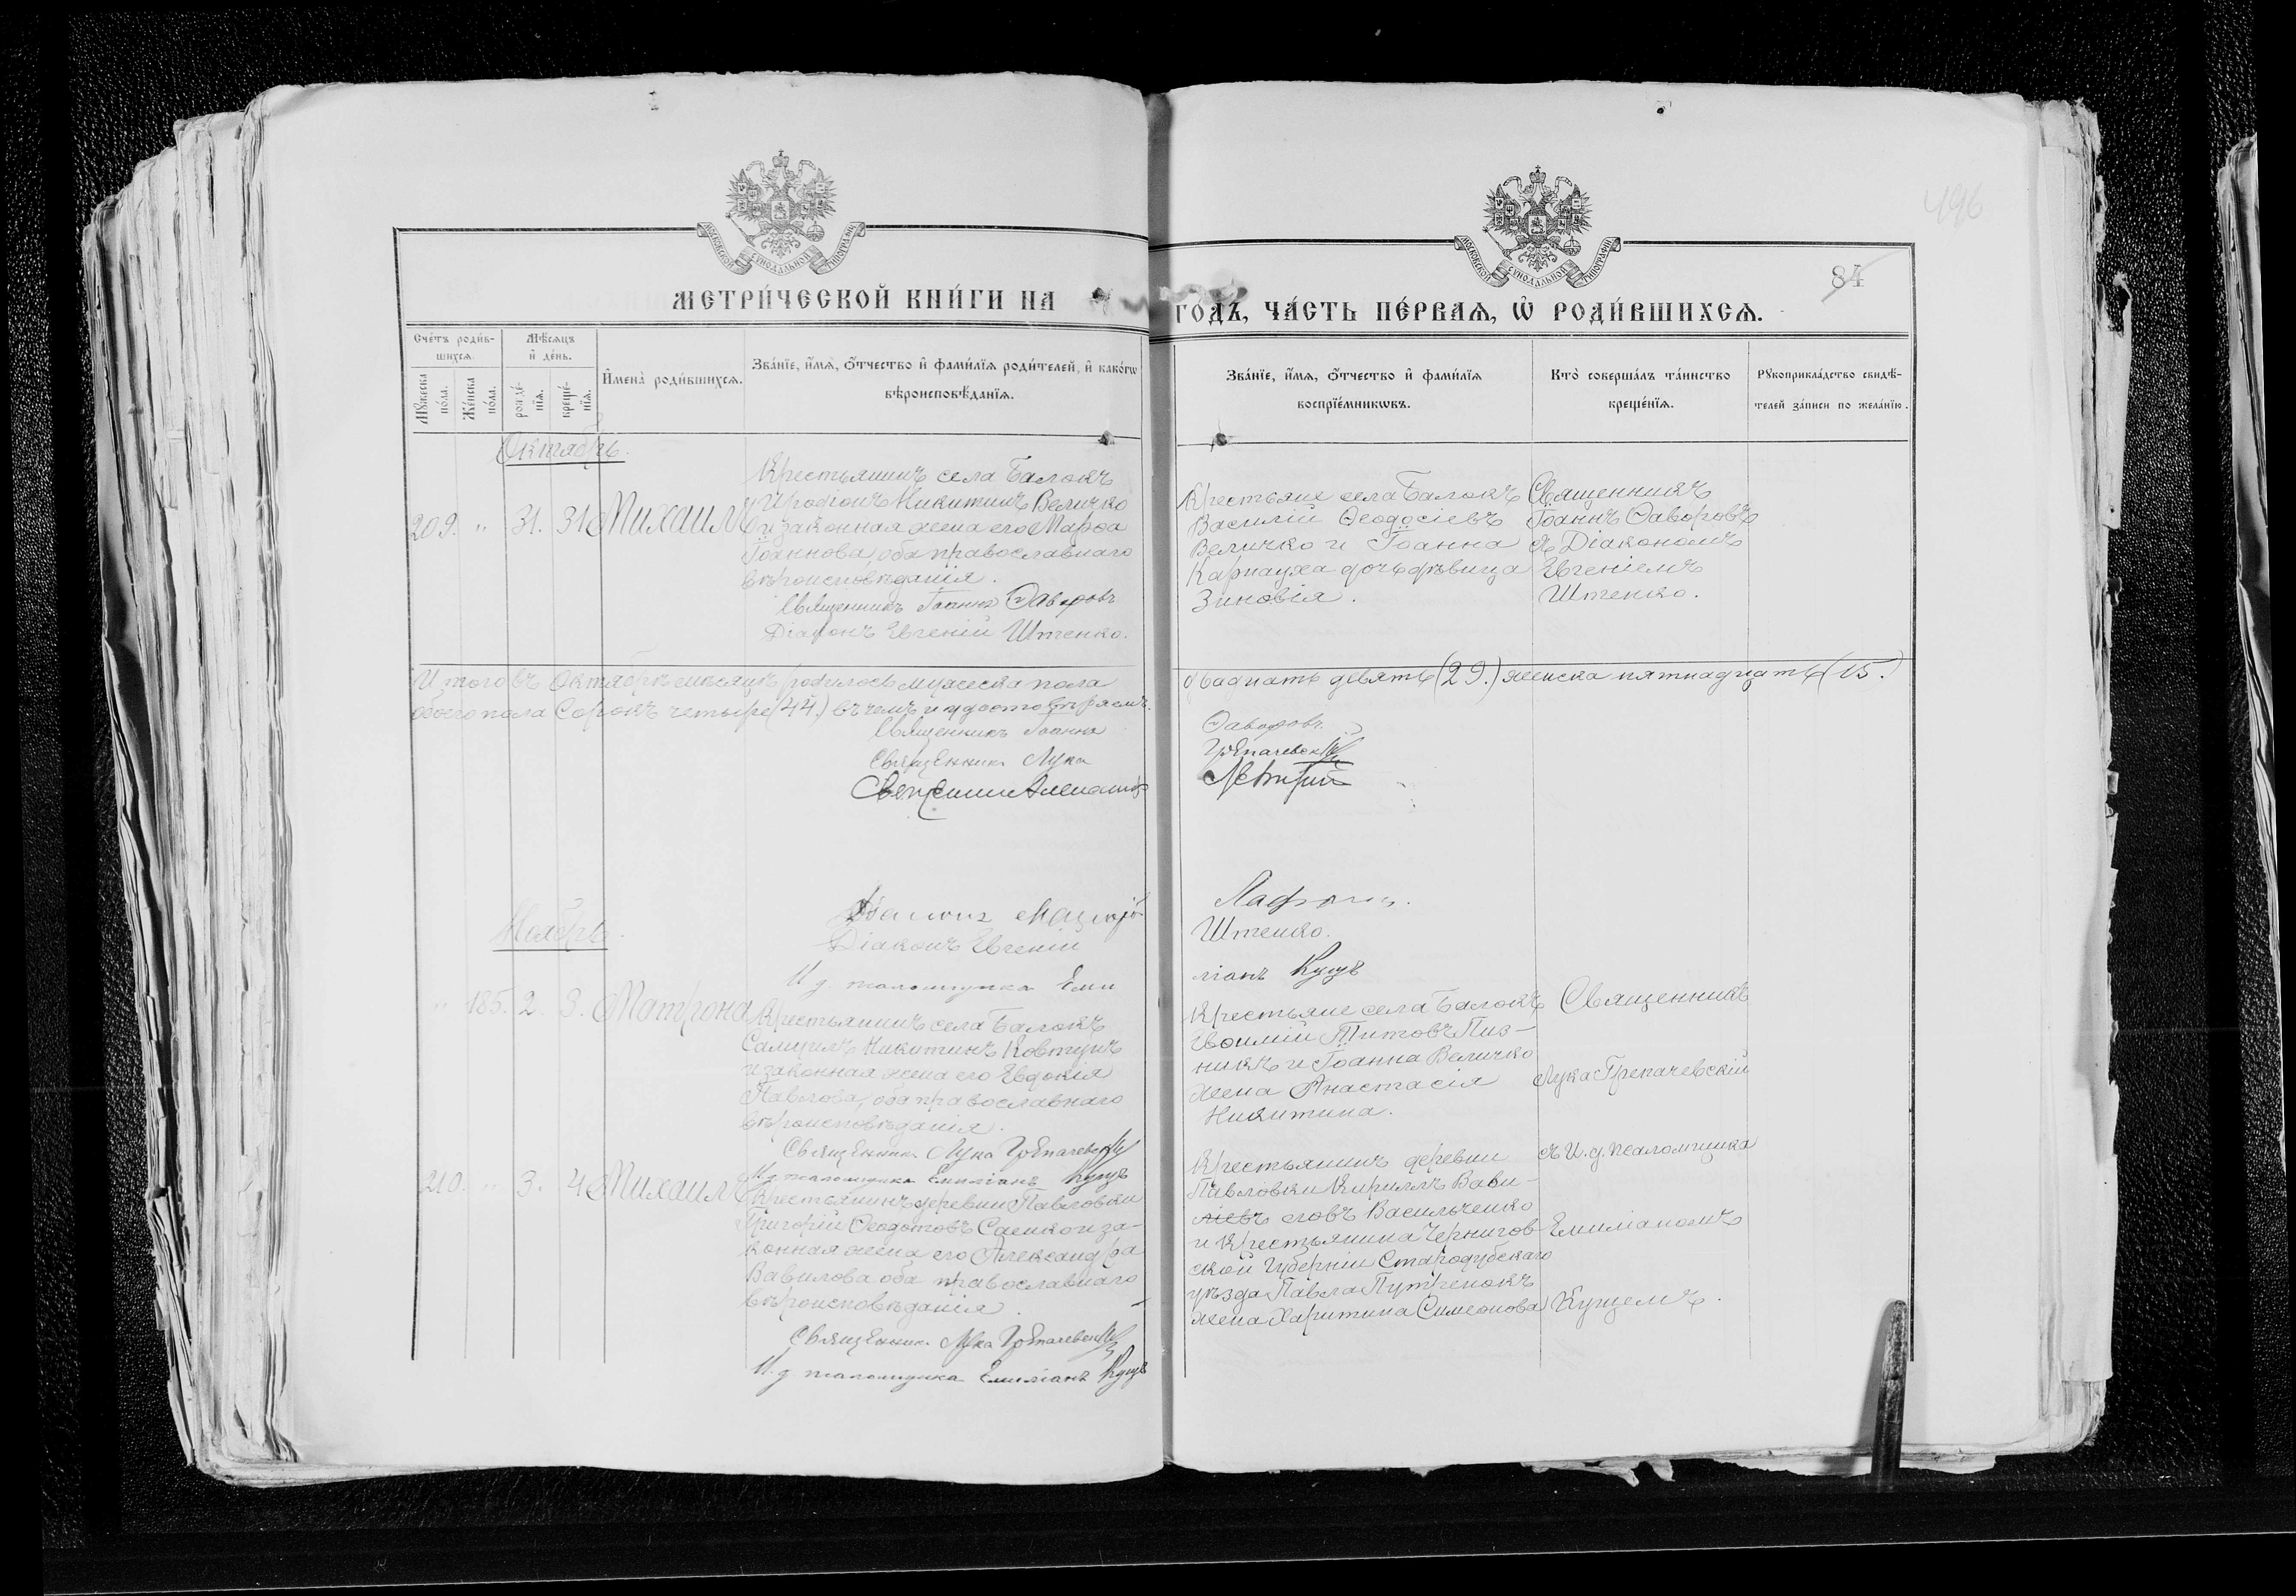 496
84
МОСКОВСКОЙ СѴНОДАЛЬНОЙ ТИПОГРАФІИ
МОСКОВСКОЙ СѴНОДАЛЬНОЙ ТИПОГРАФІИ
МЕТРИ́ЧЕСКОЙ КНИ́ГИ НА
ГОДЪ, ЧА́СТЬ ПЕ́РВАѦ, Ѡ҆ РОДИ́ВШИХСѦ.
Сче́тъ роди́в-
шихсѧ.
Мꙋ́жеска по́ла.
Же́нска по́ла.
Мѣ́сѧцъ
и҆ де́нь.
рожде́-
нїѧ.
креще́-
нїѧ.
И҆мена̀ роди́вшихсѧ.
Зва́нїе, и҆́мѧ, ѻ҆́тчество и҆ фами́лїѧ роди́телей, и҆ како́гѡ
вѣроисповѣ́данїѧ.
Зва́нїе, и҆́мѧ, ѻ҆́тчество и҆ фами́лїѧ
воспрїе́мникѡвъ.
Кто̀ соверша́лъ та́инство
креще́нїѧ.
Рꙋкоприкла́дство свидѣ́-
телей за́писи по жела́нїю.
Октябрь.
209. " 31. 31 Михаилъ
Крестьянинъ села Балокъ
Иродіонъ Никитинъ Величко
и законная жена его Марѳа
Іоаннова, оба православнаго
вѣроисповѣданія.
Священникъ Іоаннъ Ѳаворовъ
Діаконъ Евгеній Штенко.
Крестьяне села Балокъ
Василій Ѳеодосіевъ
Величко и Іоанна
Карнауха дочь дѣвица
Зиновія.
Священникъ
Іоаннъ Ѳаворовъ
съ Діакономъ
Евгеніемъ
Штенко.
Итого въ Октябрѣ мѣсяцѣ родилось мужеска пола
двадцать девять (29.) женска пятнадцать (15.)
обоего пола сорокъ четыре (44.) въ чемъ и удостовѣряемъ.
Священникъ Іоаннъ
Ѳаворовъ.
Священникъ Лука
Грепачевскій
Діаконъ Евгеній
Штенко.
И. д. псаломщика Еми
ліанъ Кущъ
Ноябрь.
" 185. 2. 3. Матрона
Крестьянинъ села Балокъ
Самуилъ Никитинъ Ковтунъ
и законная жена его Евдокія
Павлова, оба православнаго
вѣроисповѣданія.
Священникъ Лука Грепачевскій
И. д. псаломщика Емиліанъ Кущъ
Крестьяне села Балокъ
Евѳимій Титовъ Пиз-
никъ и Іоанна Величко
жена Анастасія
Никитина.
Священникъ
Лука Грепачевскій
съ И. д. псаломщика
Емиліаномъ
Кущемъ.
210. " 3. 4 Михаилъ
Крестьянинъ деревни Павловки
Григорій Ѳеодотовъ Саенко и за-
конная жена его Александра
Вавилова оба православнаго
вѣроисповѣданія.
Священникъ Лука Грепачевскій
И. д. псаломщика Емиліанъ Кущъ
Крестьянинъ деревни
Павловки Кириллъ Вави-
ловъ Васильченко
и крестьянина Чернигов-
ской Губерніи Стародубскаго
уѣзда Павла Путренокъ
жена Харитина Симеонова